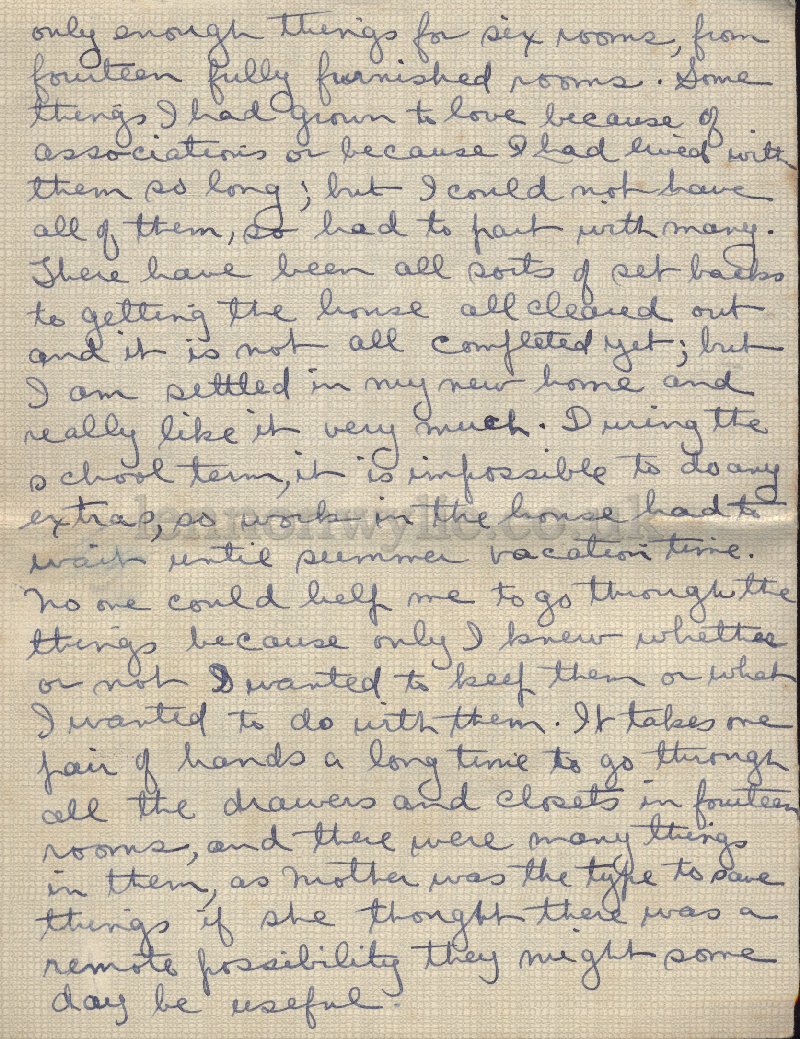 only enough things for six rooms, from
fourteen fully furnished rooms. Some
things I had grown to love because of
associations or because I had lived with
them so long; but I could not have
all of them, so had to part with many.
There have been all sorts of set backs
to getting the house all cleared out
and it is not all completed yet; but
I am settled in my new home and
really like it very much. During the
school term, it is impossible to do any
extras, so work in the house had to
wait until summer vacation time.
No one could help me to go through the
things because only I knew whether
or not I wanted to keep them or what
I wanted to do with them. It takes one
pair of hands a long time to go through
all the drawers and closets in fourteen
rooms, and there were many things
in them, as Mother was the type to save
things if she thought there was a
remote possibility they might some
day be useful.
lennonwylie.co.uk